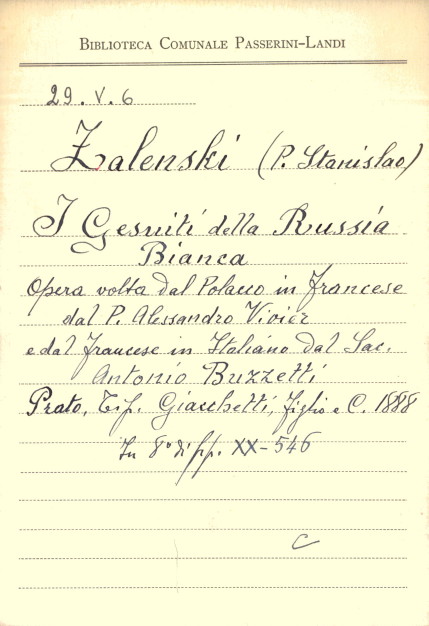 BIBLIOTECA COMUNALE PASSERINI-LANDI
29. V. 6
Zalenski (P. Stanislao)
I Gesuiti della Russia
Bianca
Opera volta dal Polacco in Francese
dal P. Alessandro Vivier
e dal francese in Italiano dal Sac.
Antonio Buzzetti
Prato, Tip. Giacchetti, figlio e C. 1888
In 8° di pp. XX-546
C